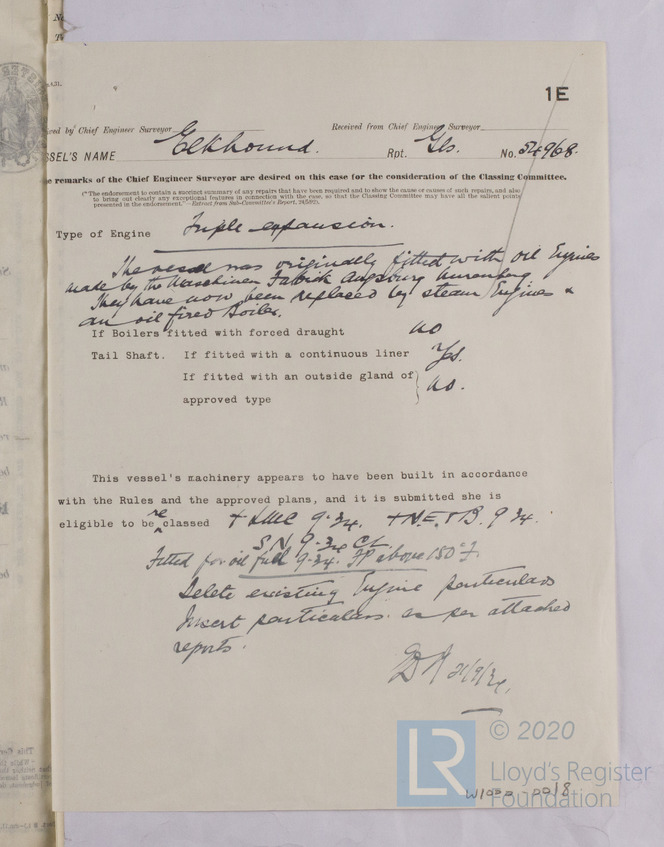 1E
ived by Chief Engineer Surveyor Received from Chief Engineer Surveyor
SSEL'S NAME Elkhound. Rpt. Gls. No. 54968.
e remarks of the Chief Engineer Surveyor are desired on this case for the consideration of the Classing Committee.
("The endorsement to contain a succinct summary of any repairs that have been required and to show the cause or causes of such repairs, and also
to bring out clearly any exceptional features in connection with the case, so that the Classing Committee may have all the salient points
presented in the endorsement."—Extract from Sub-Committee's Report,
Type of Engine Triple expansion.
The vessel was originally fitted with oil Engines
made by the Maschinen Fabrik Augsburg Nurenberg
They have now been replaced by steam Engines &
an oil fired Boiler.
If Boilers fitted with forced draught no
Tail Shaft. If fitted with a continuous liner Yes.
If fitted with an outside gland of
approved type no.
This vessel's machinery appears to have been built in accordance
with the Rules and the approved plans, and it is submitted she is
eligible to be re classed + LMC 9.34. + N.E. & B. 9 34.
S.N. 9.34 CL
Fitted for oil fuel 9.34. FP above 150°F.
Delete existing Engine particulars
Insert particulars as per attached
reports.
21/9/34.
© 2020
LR
Lloyd's Register
Foundation
0018